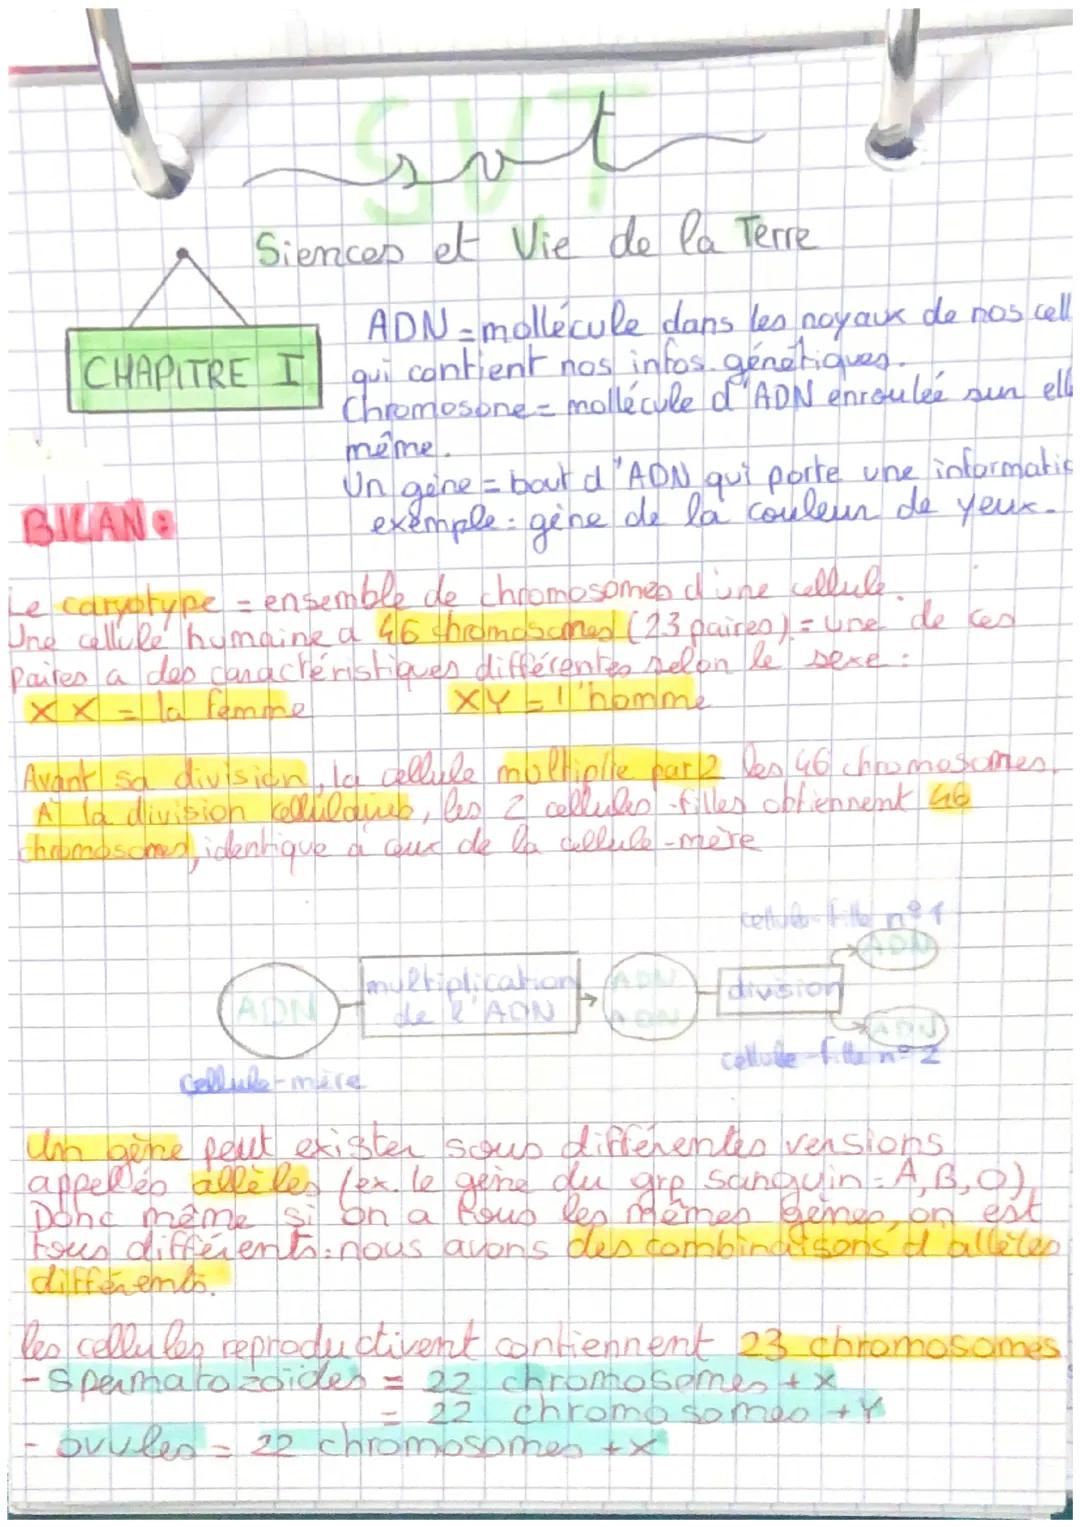 SVT
svt
Siences et Vie de la Terre
CHAPITRE I
ADN = mollécule dans les noyaux de nos cell
qui contient nos infos. génétiques.
Chromosone = mollécule d'ADN enroulée sur elle
même.
Un gène = bout d'ADN qui porte une informatio
exemple : gène de la couleur de yeux.
BILAN :
Le caryotype = ensemble de chromosomes d'une cellule.
Une cellule humaine a 46 chromosomes (23 paires) = une de ces
paires a des caractéristiques différentes selon le sexe :
XX = la femme XY = l'homme
Avant sa division, la cellule multiplie par 2 les 46 chromosomes.
A la division cellulaire, les 2 cellules-filles obtiennent 46
chromosomes, identique à ceux de la cellule-mère
cellule-fille n°1
ADN
multiplication
de l'ADN
ADN
ADN
ADN
division
ADN
cellule-fille n°2
cellule-mère
Un gène peut exister sous différentes versions
appellés allèles (ex. le gène du grp sanguin : A, B, O)
Donc même si on a tous les mêmes gènes, on est
tous différents : nous avons des combinaisons d'allèles
différents.
les cellules reproductivent contiennent 23 chromosomes
- Spermatozoïdes = 22 chromosomes + X
= 22 chromosomes + Y
- ovules = 22 chromosomes + X